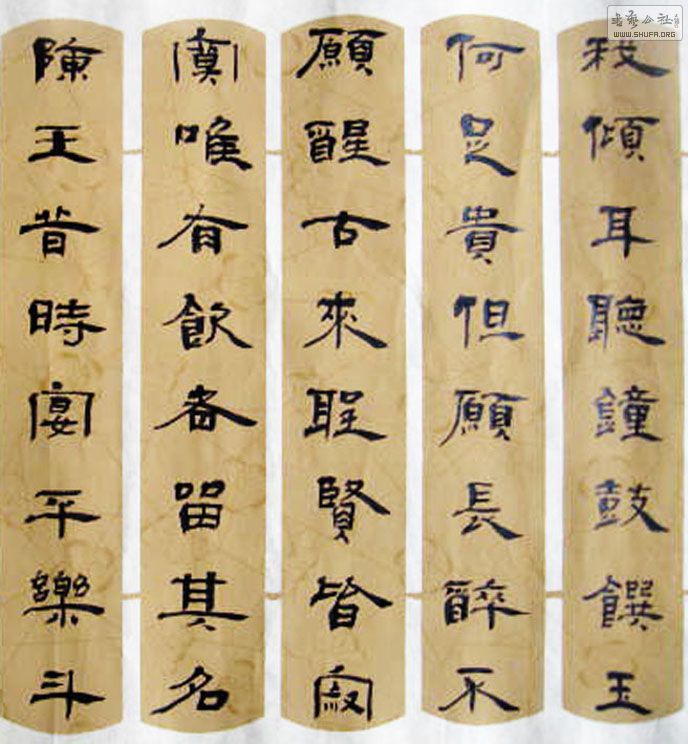 我傾耳聽鐘鼓饌玉
何足貴但願長醉不
願醒古來聖賢皆寂
寞唯有飲者留其名
陳王昔時宴平樂斗
書藝公社
WWW.SHUFA.ORG